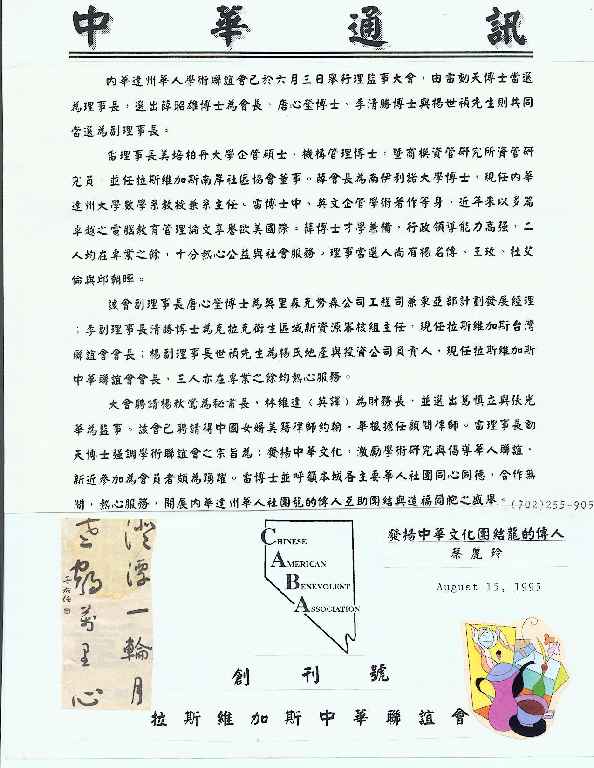 中華通訊
內華達州華人學術聯誼會已於六月三日舉行理監事大會，由雷勳天博士當選
為理事長，選出薛昭雄博士為會長，唐心瑩博士、李清勝博士與楊世禎先生則共同
當選為副理事長。
雷理事長美培柏丹大學企管碩士，機構管理博士，暨商模資管研究所資管研
究員，並任拉斯維加斯南岸社區協會董事。薛會長為南伊利諾大學博士，現任內華
達州大學數學系教授兼系主任。雷博士中、英文企管學術著作等身，近年來以多篇
卓越之電腦教育管理論文享譽歐美國際。薛博士才學兼備，行政領導能力高強，二
人均在專業之餘，十分熱心公益與社會服務。理事當選人尚有楊名傳、王玫、杜艾
倫與邱朝暉。
該會副理事長唐心瑩博士為莫里森克努森公司工程司兼東亞部計劃發展經理
；李副理事長清勝博士為克拉克衛生區域新資源審核組主任，現任拉斯維加斯台灣
聯誼會會長；楊副理事長世禎先生為楊氏地產與投資公司負責人，現任拉斯維加斯
中華聯誼會會長，三人亦在專業之餘均熱心服務。
大會聘請楊秋鶯為秘書長，林維達（英譯）為財務長，並選出葛慎立與張光
華為監事。該會已聘請得中國女婿美籍律師約翰·畢根擔任顧問律師。雷理事長勳
天博士強調學術聯誼會之宗旨為：發揚中華文化，激勵學術研究與倡導華人聯誼，
新近參加為會員者頗為踴躍。雷博士並呼籲本城各主要華人社團同心同德，合作無
間，熱心服務，開展內華達州華人社團龍的偉人互助團結與造福同胞之盛舉。(702)255-905
澄潭一輪月
老鶴萬里心
CHINESE
AMERICAN
BENEVOLENT
ASSOCIATION
發揚中華文化團結龍的偉人
蔡麗玲
August 15, 1995
創刊號
拉斯維加斯中華聯誼會